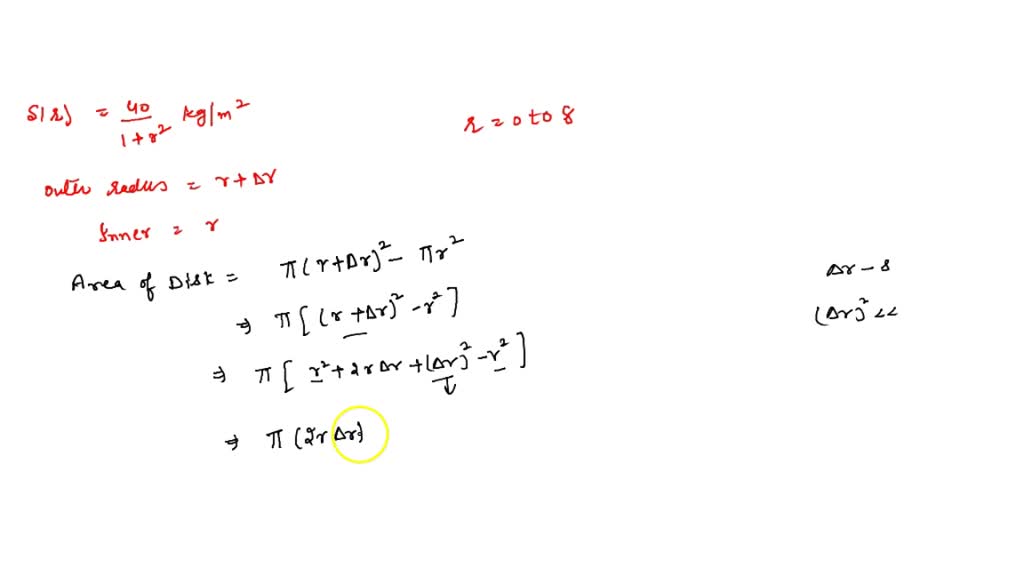 S(r) = 40/(1+r²) kg/m²
r = 0 to 8
outer radius = r+Δr
Inner = r
Area of Disk = π(r+Δr)² - πr²
⇒ π[(r+Δr)² - r²]
⇒ π[r² + 2rΔr + (Δr)² - r²]
⇒ π(2rΔr)
Δr - s
(Δr)² <<